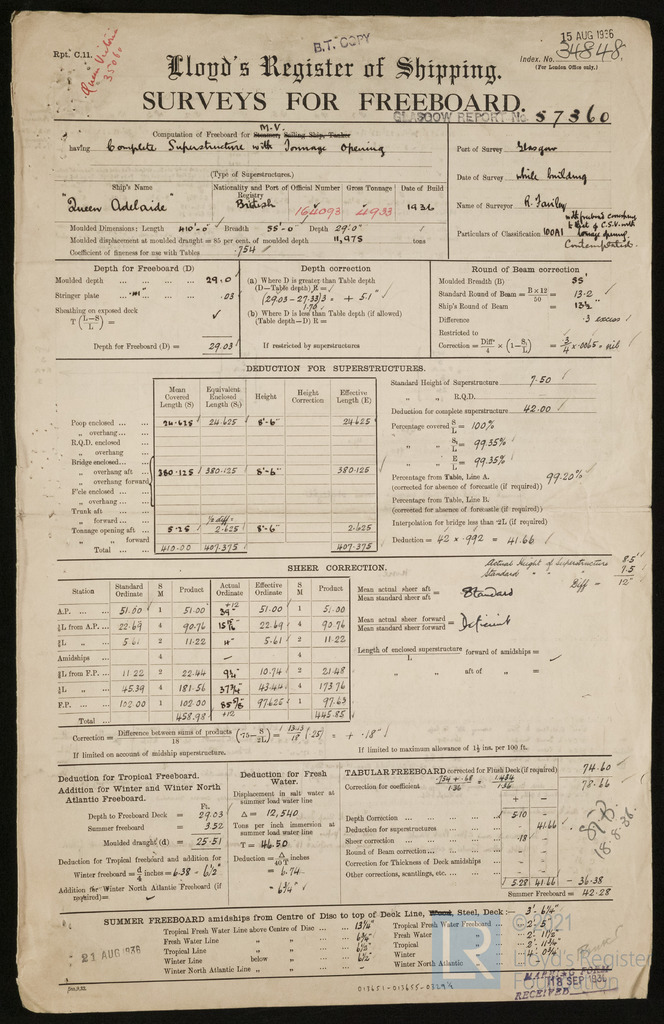 Rpt. C.11.
Queen Victoria
35060
B.T. COPY
15 AUG 1936
Index. No. 34848
(For London Office only.)
Lloyd's Register of Shipping.
SURVEYS FOR FREEBOARD.
GLASGOW REPORT No. 57360
Computation of Freeboard for Steamer, Sailing Ship, Tanker
M.V.
having Complete Superstructure with Tonnage Opening
(Type of Superstructures.)
Port of Survey Glasgow
Date of Survey while building
Name of Surveyor R. Fairley
Particulars of Classification 100A1
Contemplated.
Ship's Name Nationality and Port of Registry Official Number Gross Tonnage Date of Build
"Queen Adelaide" British 164093 4933 1936
Moulded Dimensions: Length 410'-0" Breadth 55'-0" Depth 29'.0"
Moulded displacement at moulded draught = 85 per cent. of moulded depth 11,975 tons
Coefficient of fineness for use with Tables .754
Depth for Freeboard (D)
Moulded depth 29.0
Stringer plate .03
Sheathing on exposed deck
T (L-S/L)
Depth for Freeboard (D) = 29.03
Depth correction
(a) Where D is greater than Table depth
(D—Table depth) R =
(29.03 - 27.33) 3 = + 5.1"
(b) Where D is less than Table depth (if allowed)
(Table depth—D) R =
If restricted by superstructures
Round of Beam correction
Moulded Breadth (B) 55'
Standard Round of Beam = B×12/50 = 13.2
Ship's Round of Beam = 13½"
Difference .3 excess
Restricted to
Correction = Diff/4 × (1-S/L) = .3/4 × .0065 = nil
DEDUCTION FOR SUPERSTRUCTURES.
Mean Covered Length (S) Equivalent Enclosed Length (S₁) Height Height Correction Effective Length (E)
Poop enclosed 24.625 24.625 8'-6" 24.625
„ overhang
R.Q.D. enclosed
„ overhang
Bridge enclosed
„ overhang aft 380.125 380.125 8'-6" 380.125
„ overhang forward
F'cle enclosed
„ overhang
Trunk aft
„ forward ½ diff =
Tonnage opening aft 5.25 2.625 8'-6" 2.625
„ „ forward
Total 410.00 407.375 407.375
Standard Height of Superstructure 7.50
„ „ R.Q.D.
Deduction for complete superstructure 42.00
Percentage covered S/L = 100%
„ S₁/L = 99.35%
„ E/L = 99.35%
Percentage from Table, Line A. 99.20%
(corrected for absence of forecastle (if required))
Percentage from Table, Line B.
(corrected for absence of forecastle (if required))
Interpolation for bridge less than ·2L (if required)
Deduction = 42 × .992 = 41.66
Actual Height of Superstructure 8.5'
Standard „ „ 7.5
Diff = 12"
SHEER CORRECTION.
Station Standard Ordinate S M Product Actual Ordinate Effective Ordinate S M Product
A.P. 51.00 1 51.00 39 +12 51.00 1 51.00
⅙L from A.P. 22.69 4 90.76 22.69 4 90.76
⅓L „ 5.61 2 11.22 5.61 2 11.22
Amidships 4 – 4
⅓L from F.P. 11.22 2 22.44 9¼ 10.74 2 21.48
⅙L „ 45.39 4 181.56 37¾ 43.44 4 173.76
F.P. 102.00 1 102.00 85⅝ +12 97.625 1 97.63
Total 458.98 445.85
Mean actual sheer aft / Mean standard sheer aft = Standard
Mean actual sheer forward / Mean standard sheer forward = Deficient
Length of enclosed superstructure / L forward of amidships =
„ „ aft of „ =
Correction = Difference between sums of products/18 (·75 - S/2L) = 13.13/18 (.25) = + .18"
If limited on account of midship superstructure.
If limited to maximum allowance of 1½ ins. per 100 ft.
Deduction for Tropical Freeboard.
Addition for Winter and Winter North Atlantic Freeboard.
Ft.
Depth to Freeboard Deck = 29.03
Summer freeboard = 3.52
Moulded draught (d) = 25.51
Deduction for Tropical freeboard and addition for
Winter freeboard = d/4 inches = 6.38 - 6½"
Addition for Winter North Atlantic Freeboard (if required) =
Deduction for Fresh Water.
Displacement in salt water at summer load water line
Δ = 12,540
Tons per inch immersion at summer load water line
T = 46.50
Deduction = Δ/40T inches
= 6.74
- 6¾"
TABULAR FREEBOARD corrected for Flush Deck (if required) 74.60
Correction for coefficient .754 + .68 / 1.36 = 1.434 / 1.36 78.66
+ –
Depth Correction 5.10
Deduction for superstructures 41.66
Sheer correction .18
Round of Beam correction – –
Correction for Thickness of Deck amidships – –
Other corrections, scantlings, etc. – –
5.28 41.66 - 36.38
Summer Freeboard = 42.28
18.8.36.
SUMMER FREEBOARD amidships from Centre of Disc to top of Deck Line, Wood, Steel, Deck:— 3'. 6¼"
Tropical Fresh Water Line above Centre of Disc 13¼"
Fresh Water Line „ „ 6¾"
Tropical Line „ „ 6½"
Winter Line below „ 6½"
Winter North Atlantic Line „ „
Tropical Fresh Water Freeboard 2'. 5"
Fresh Water „ 2'. 11½"
Tropical „ 2'. 11¾"
Winter „ 4'. 0¾"
Winter North Atlantic „
21 AUG 1936
MARKING FORM
RECEIVED 18 SEP 1936
© 2021
Lloyd's Register
Foundation
LR
013651-013655-0329 ¾